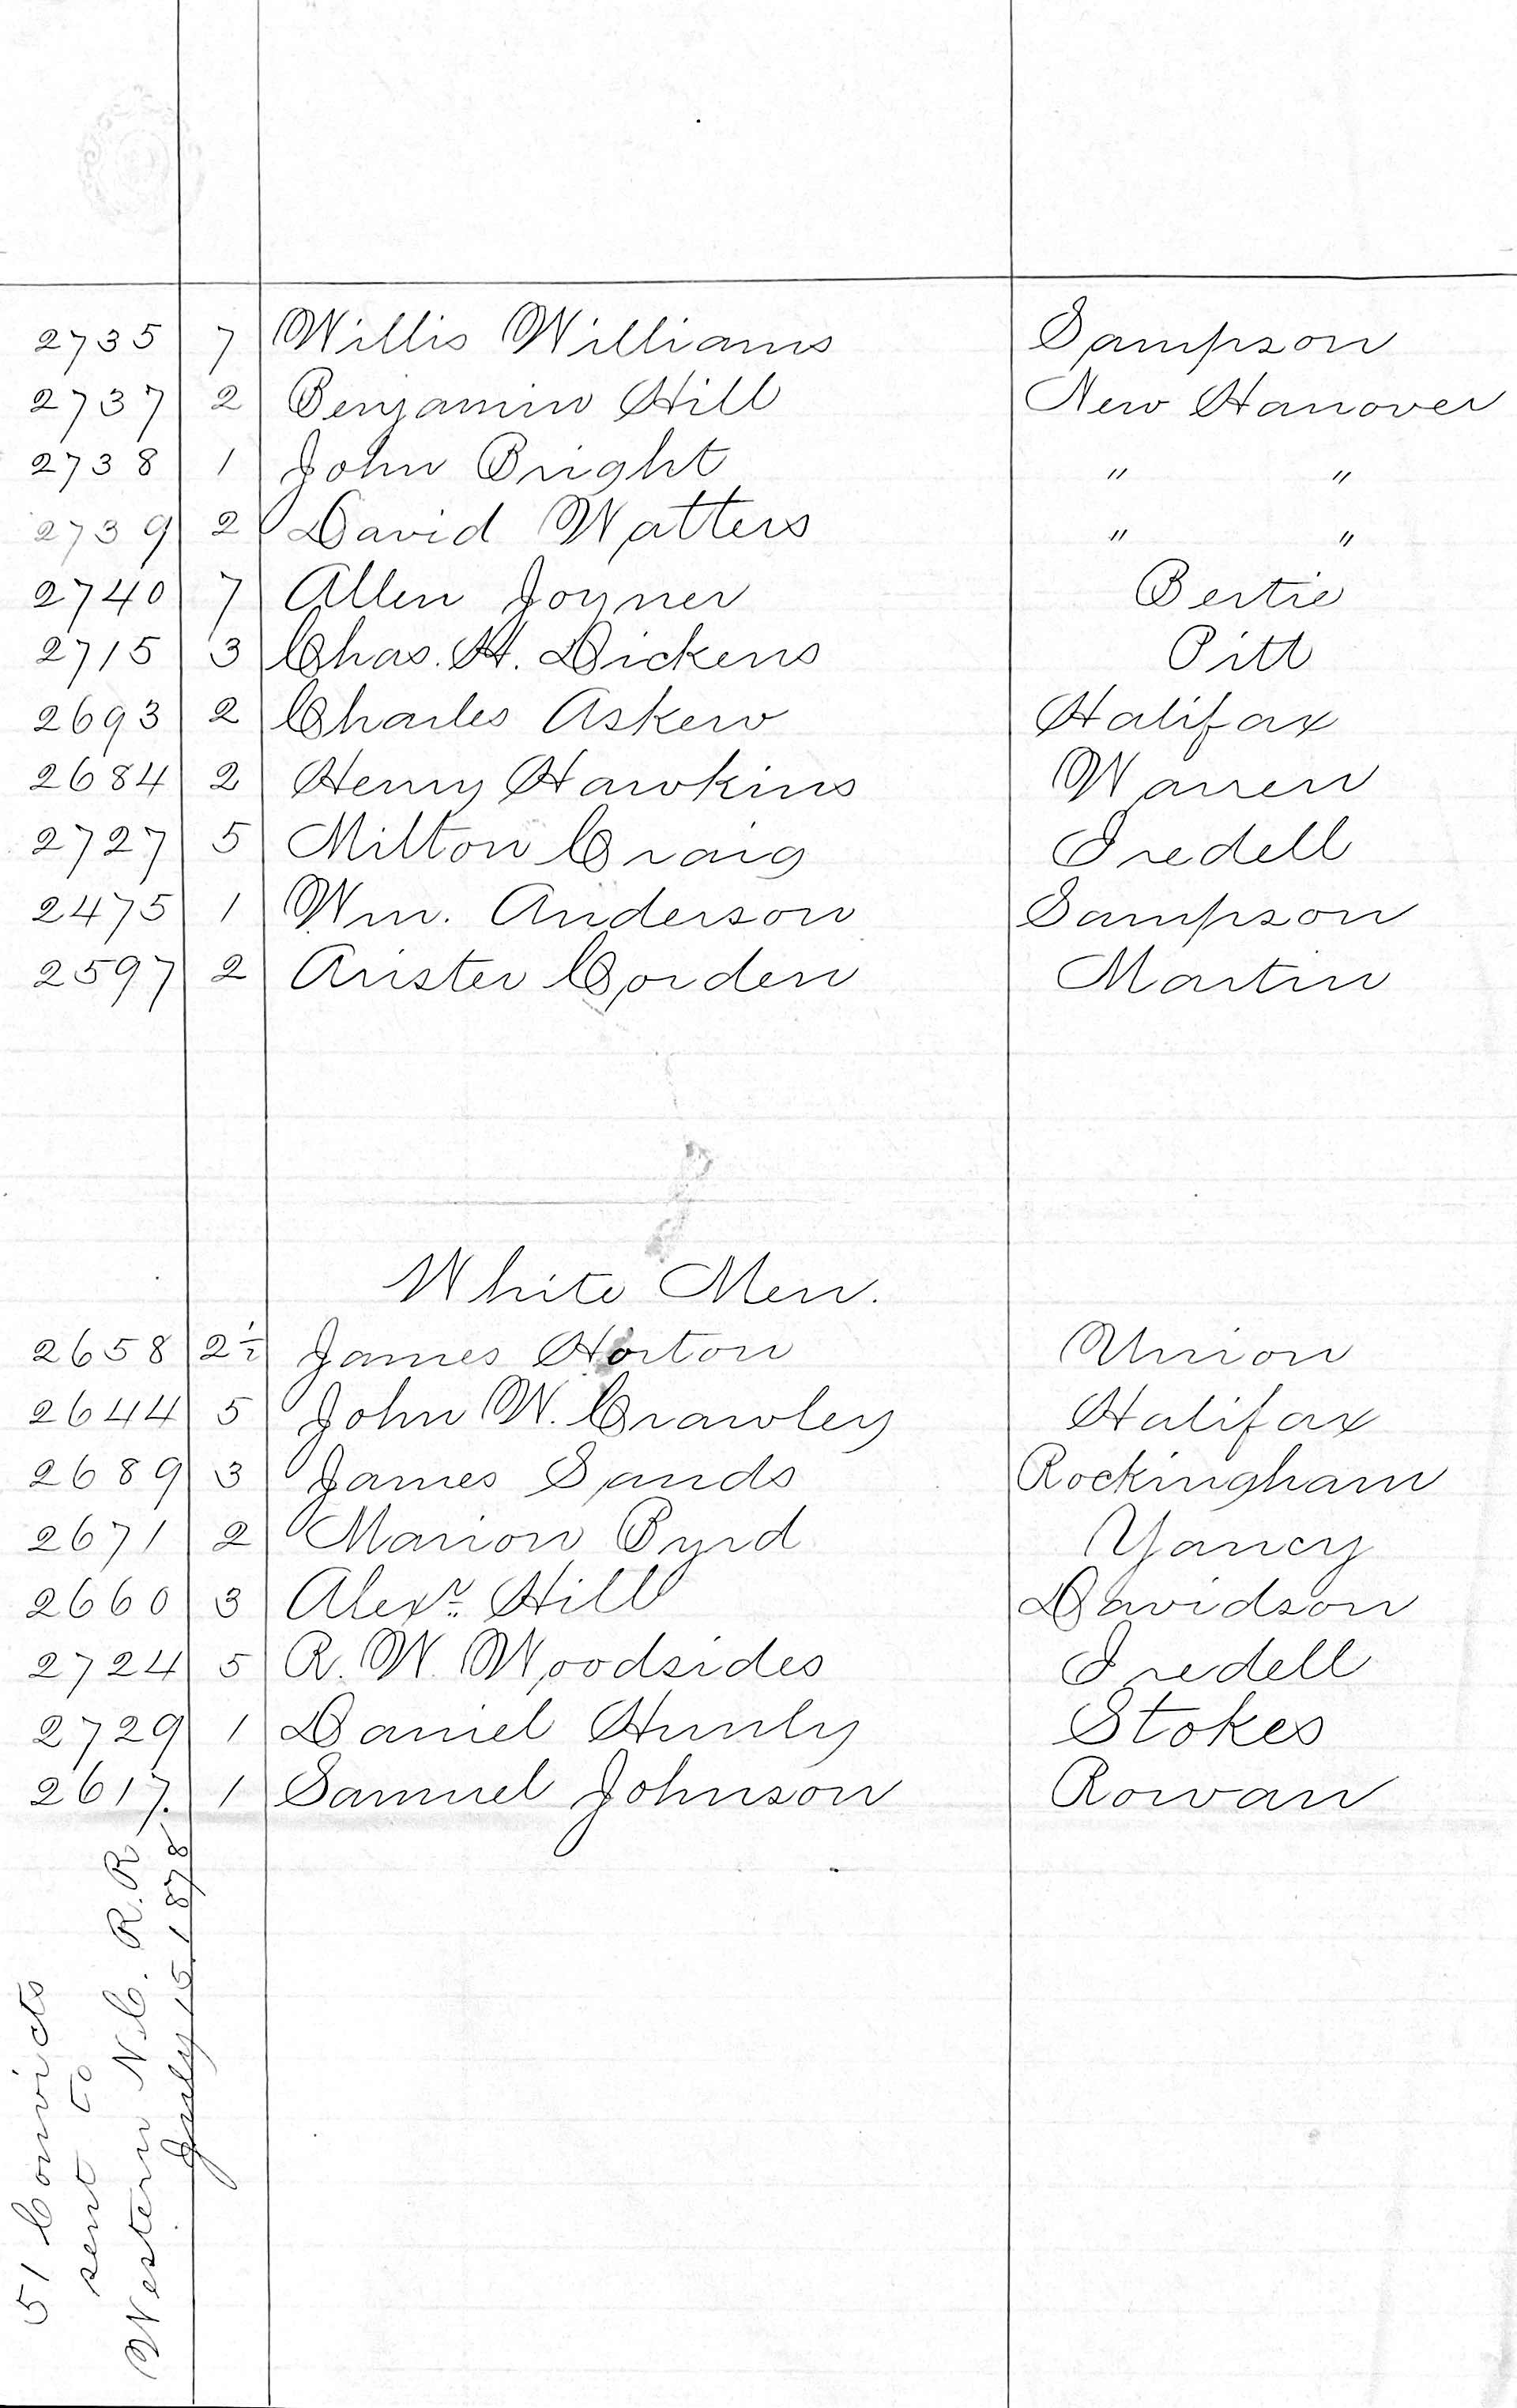 2735 7 Willis Williams Sampson
2737 2 Benjamin Hill New Hanover
2738 1 John Bright " "
2739 2 David Watters " "
2740 7 Allen Joyner Bertie
2715 3 Chas. H. Dickens Pitt
2693 2 Charles Askew Halifax
2684 2 Henry Hawkins Warren
2727 5 Milton Craig Iredell
2475 1 Wm. Anderson Sampson
2597 2 Arister Corden Martin
White Men.
2658 2½ James Horton Union
2644 5 John W. Crawley Halifax
2689 3 James Sands Rockingham
2671 2 Marion Byrd Yancy
2660 3 Alexr. Hill Davidson
2724 5 R. W. Woodsides Iredell
2729 1 Daniel Hunly Stokes
2617. 1 Samuel Johnson Rowan
51 Convicts
sent to
Western N.C. R.R
July 15, 1878